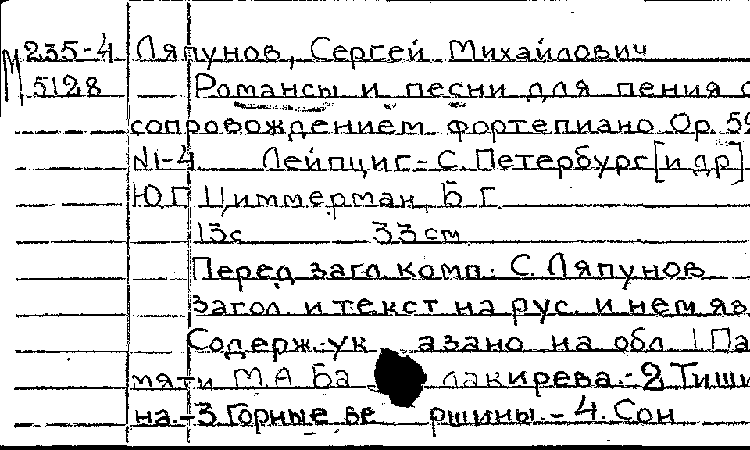 М 235-4 Ляпунов, Сергей Михайлович
5128 Романсы и песни для пения с
сопровождением фортепиано Ор. 59
N1-4 Лейпциг-С. Петербург [и др]
Ю.Г. Циммерман, Б Г.
13с 33 см
Перед загл. комп: С. Ляпунов
Загол. и текст на рус. и нем яз
Содерж.-ук азано на обл. 1 Па
мяти М.А. Ба лакирева.-2 Тиши
на.-3. Горные ве ршины.-4. Сон